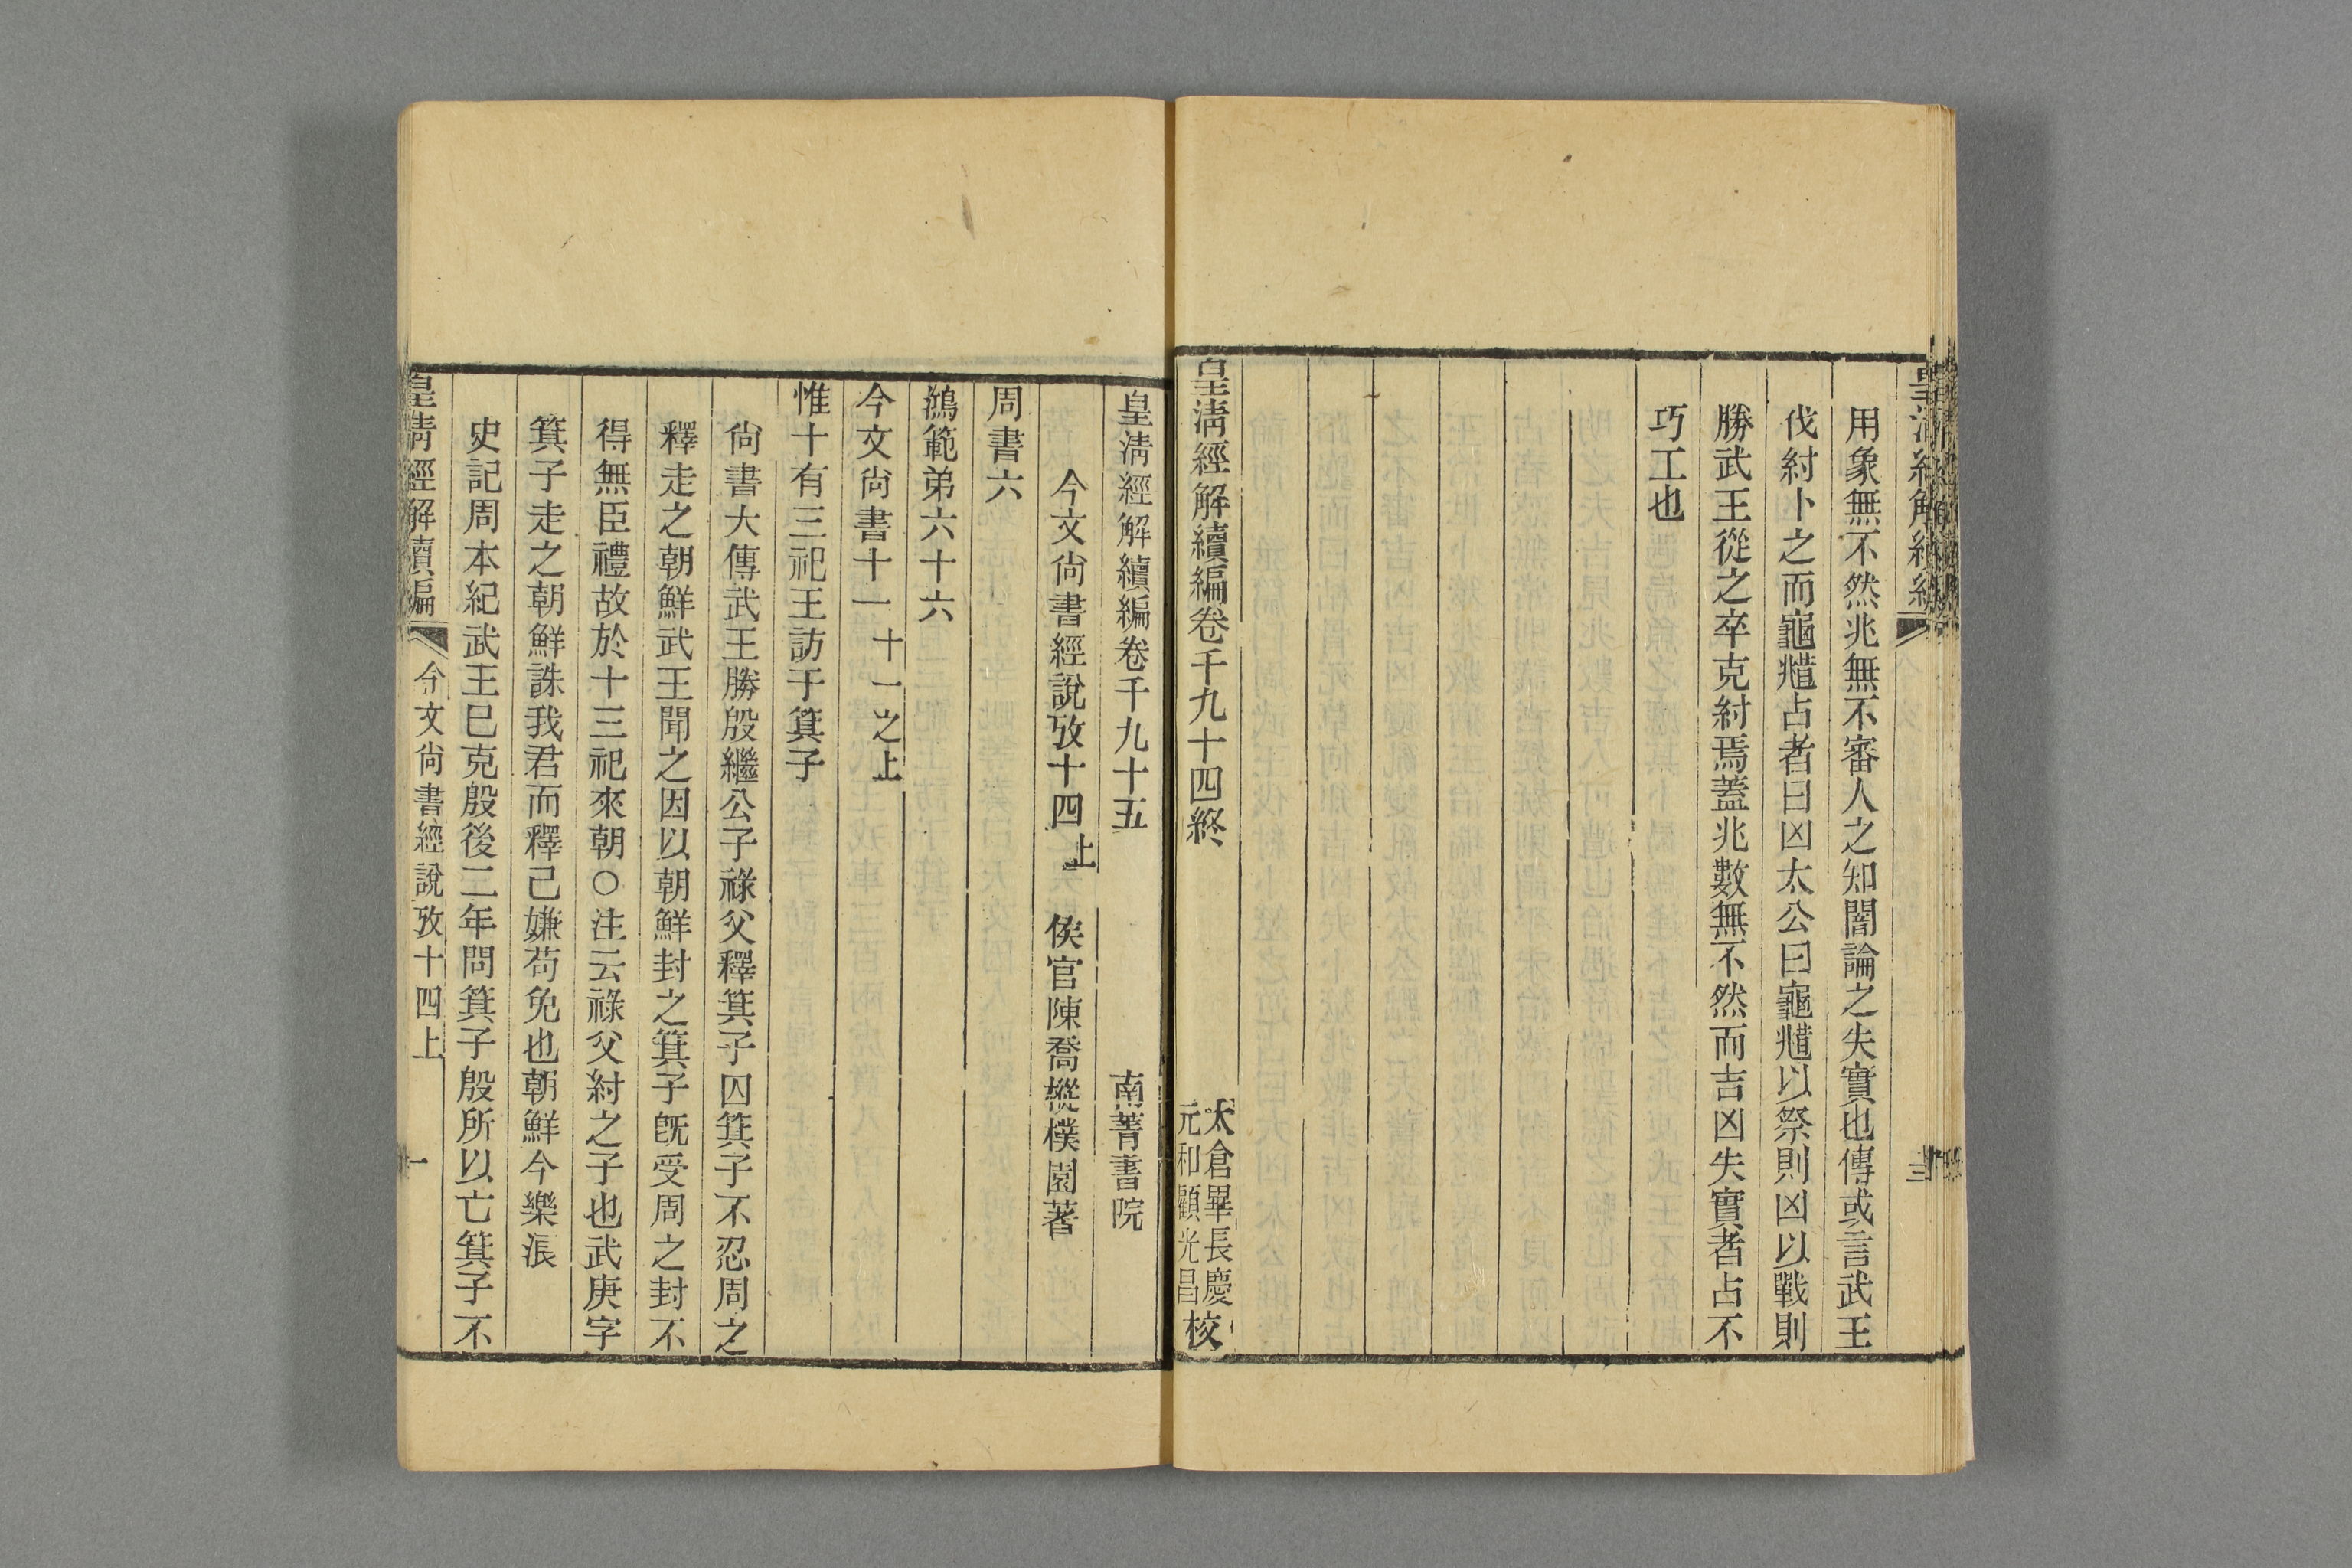 用象無不然兆無不審人之知闇論之失實也傳或言武王
伐紂卜之而龜𠧞占者曰凶太公曰龜𠧞以祭則凶以戰則
勝武王從之卒克紂焉蓋兆數無不然而吉凶失實者占不
巧工也
皇淸經解續編卷千九十四終
太倉畢長慶
元和顧光昌
校
皇淸經解續編卷千九十五
南菁書院
今文尙書經說攷十四上
侯官陳喬樅樸園著
周書六
鴻範弟六十六
今文尙書十一 十一之上
惟十有三祀王訪于箕子
尙書大傳武王勝殷繼公子祿父釋箕子囚箕子不忍周之
釋走之朝鮮武王聞之因以朝鮮封之箕子旣受周之封不
得無臣禮故於十三祀來朝○注云祿父紂之子也武庚字
箕子走之朝鮮誅我君而釋己嫌苟免也朝鮮今樂浪
史記周本紀武王已克殷後二年問箕子殷所以亡箕子不
皇淸經解續編
今文尙書經說攷十四上
一